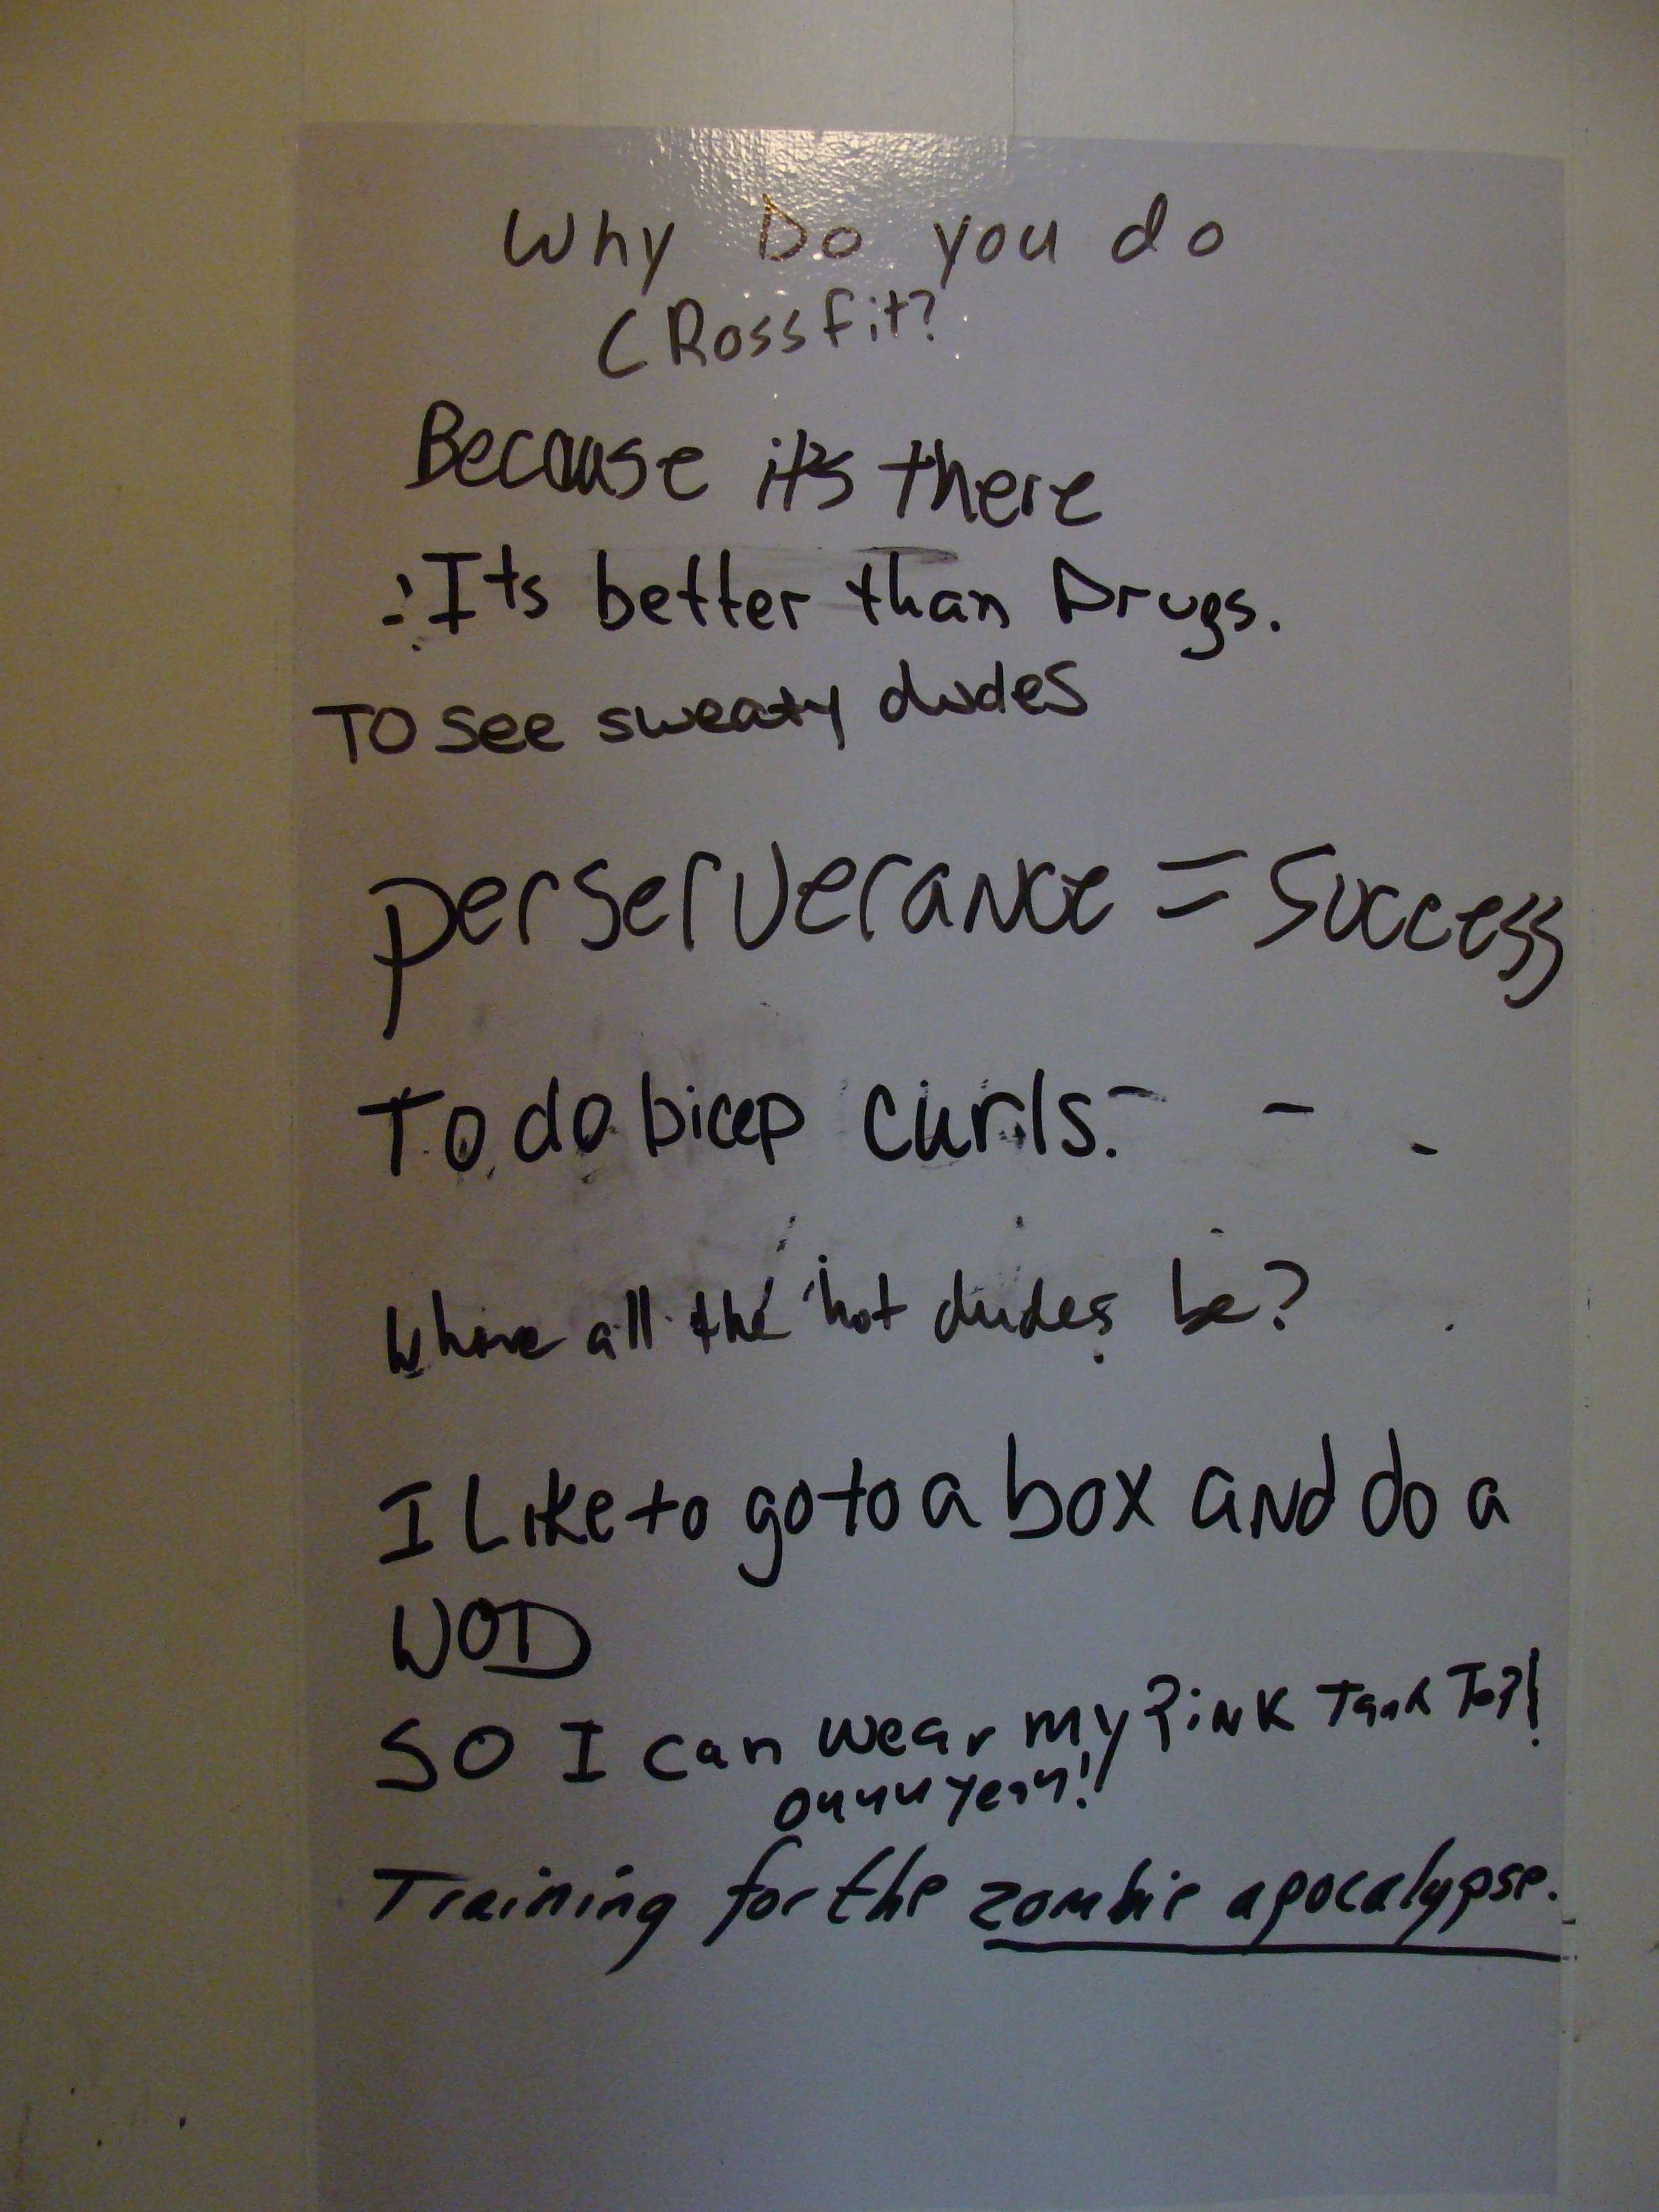 Why Do you do
CRossfit?
Because it's there
Its better than Drugs.
TO see sweaty dudes
perserverance = Success
To do bicep curls.
Where all the hot dudes be?
I Like to go to a box and do a
WOD
SO I can wear my PiNK Tank Top!
Training for the zombie apocalypse.